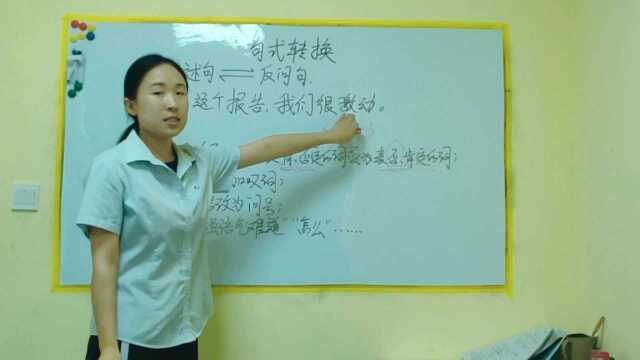 句式转换
述句⇌反问句.
这个报告,我们很激动。
肯,否定的词改为表否,肯定的词;
加叹词;
改为问号;
强语气难道"“怎么”……